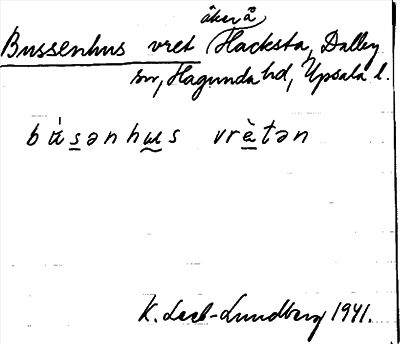 åker å
Bussenhus vret Hacksta, Dalby
sn, Hagunda hd, Upsala l.
bu̇́s̲ənhɯ̲s vrè̲tən
K. Leeb-Lundberg 1941.